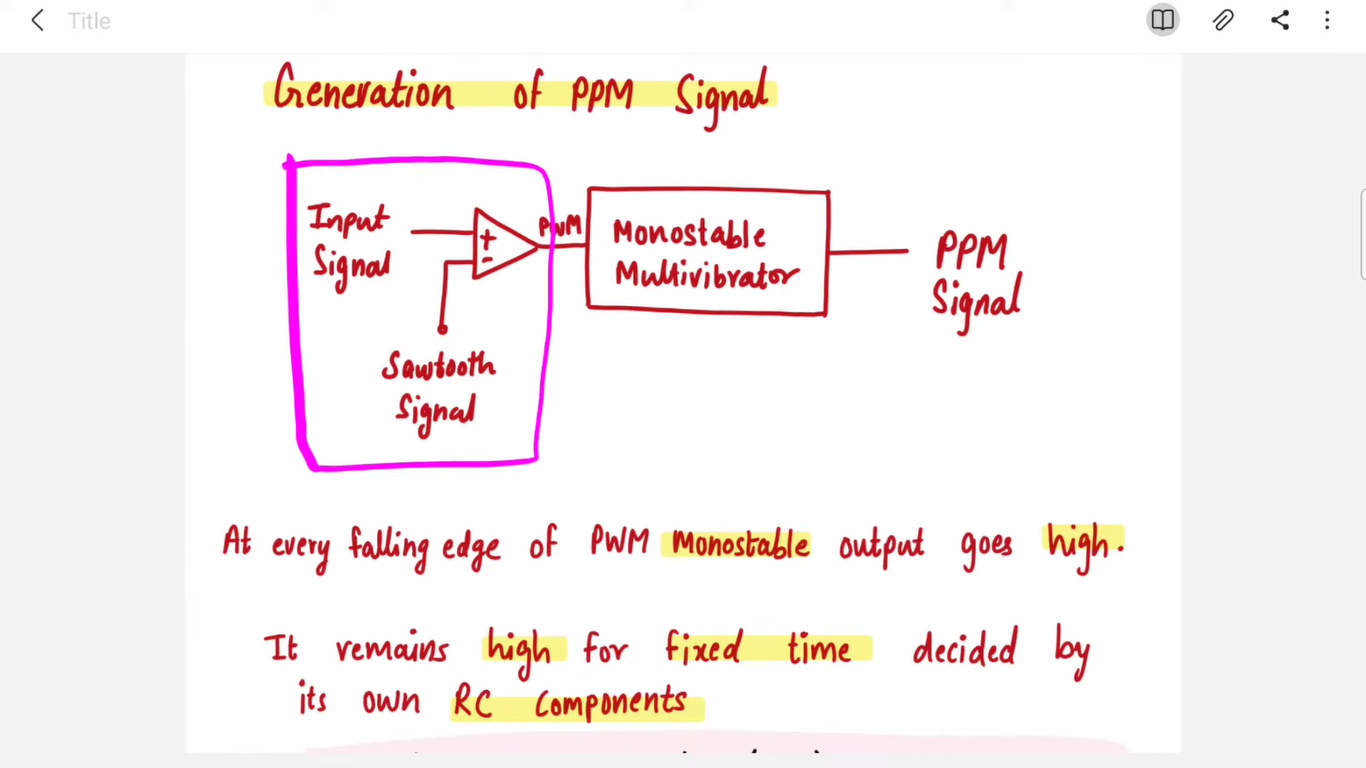 Title
Generation of PPM Signal
Input
Signal
+
-
PWM
Monostable
Multivibrator
PPM
Signal
Sawtooth
Signal
At every falling edge of PWM Monostable output goes high.
It remains high for fixed time decided by
its own RC Components